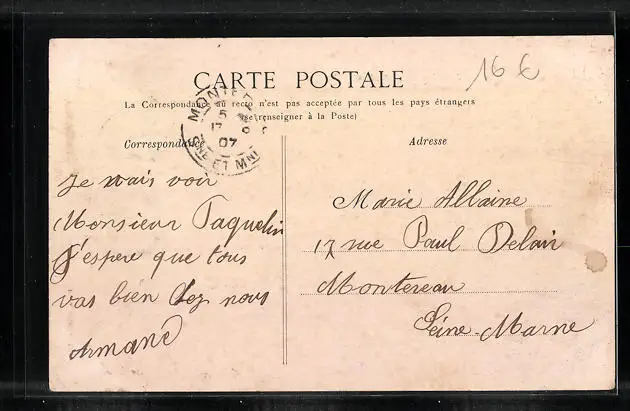 16 €
CARTE POSTALE
La Correspondance au recto n'est pas acceptée par tous les pays étrangers
(se renseigner à la Poste)
Correspondance
Adresse
MONTE
07
ET MNE
Je vais voir
Monsieur Paquelin
J'espere que tous
vas bien chez nous
Armand
Marie Allaine
17 rue Paul Delair
Montereau
Seine-Marne